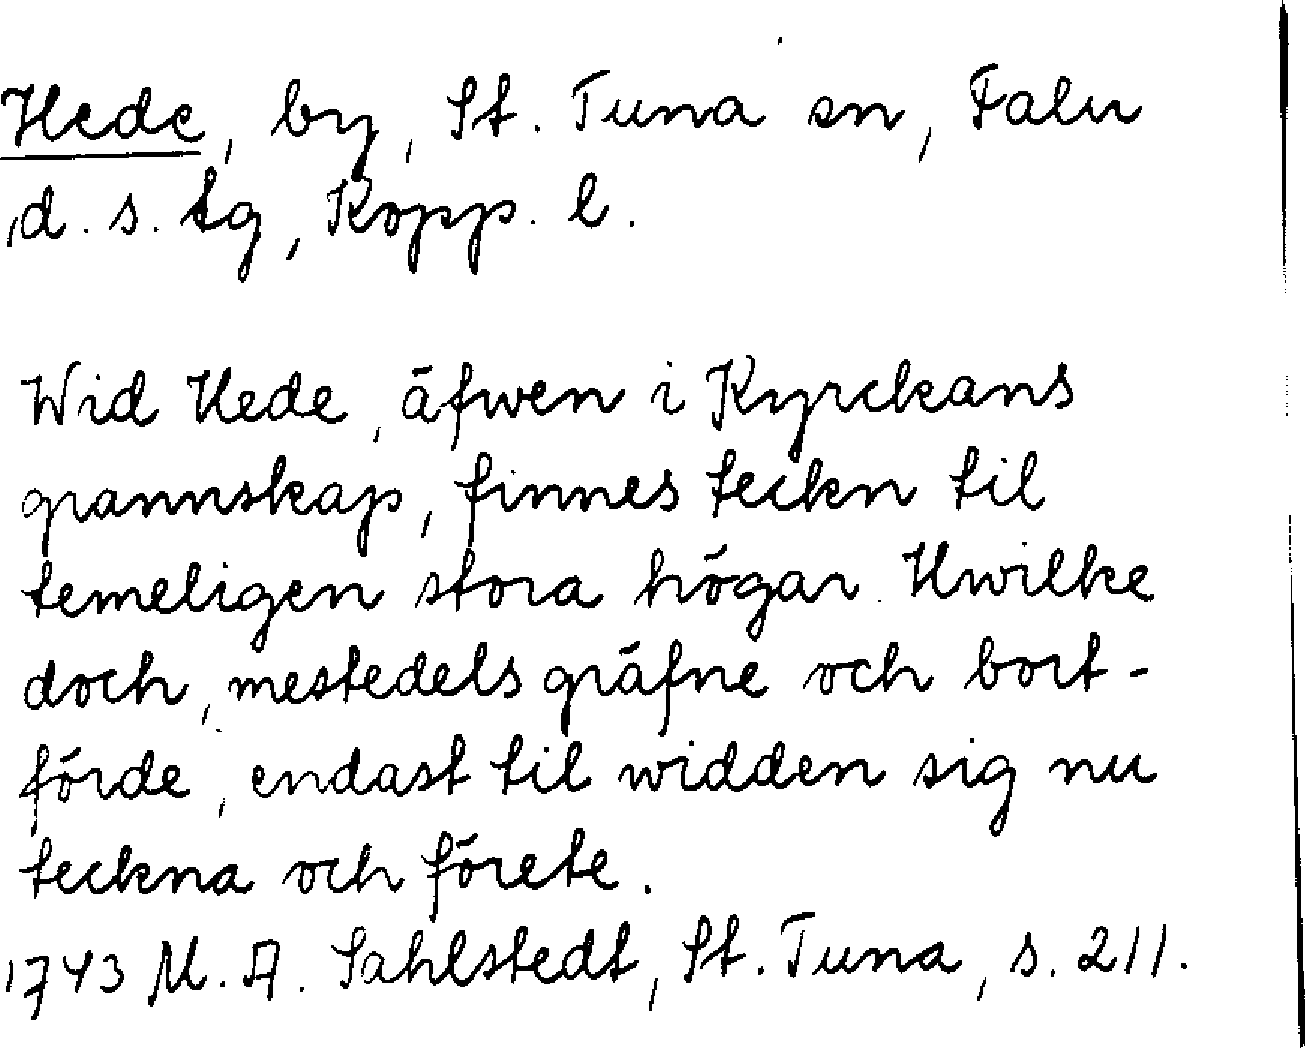 Hede, by, St. Tuna sn, Falu
d. s. tg, Kopp. l.
Wid Hede, äfwen i Kyrckans
grannskap, finnes teckn til
temeligen stora högar. Hwilke
doch, mestedels gräfne och bort-
förde, endast til widden sig nu
teckna och förete.
1743 M. A. Sahlstedt, St. Tuna, s. 211.